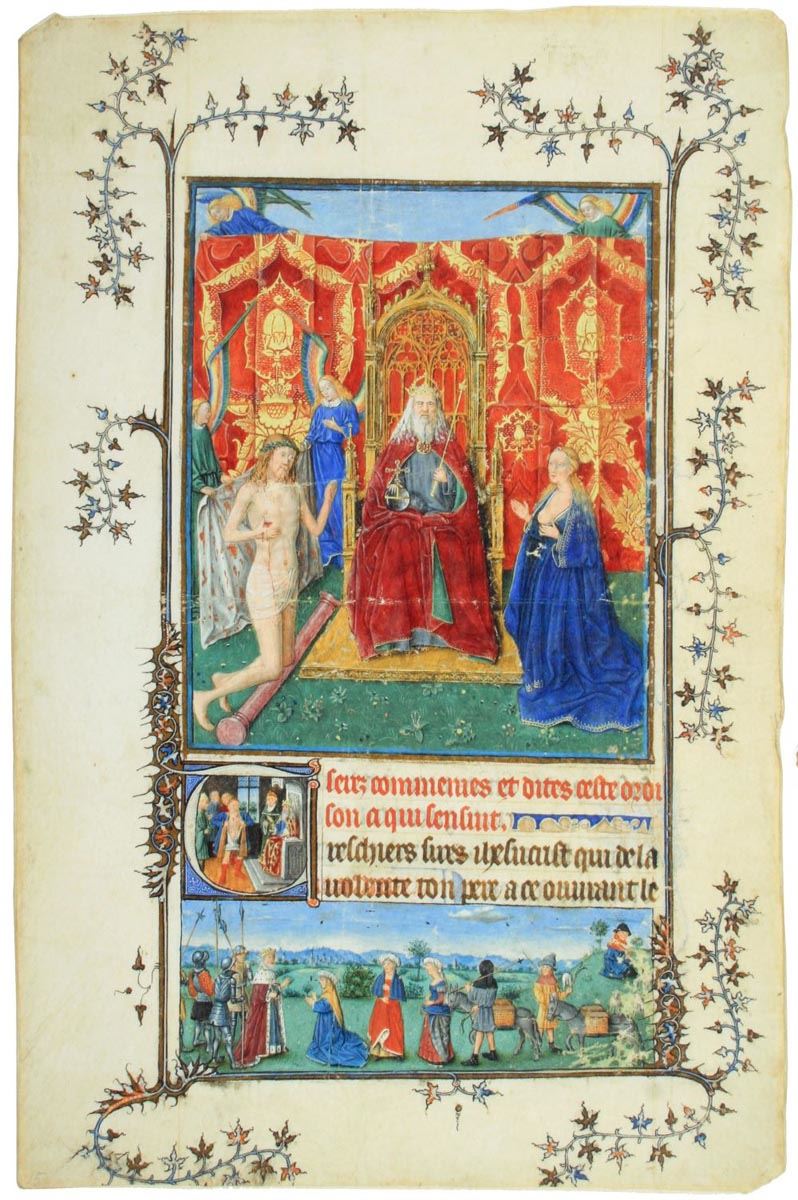 et dites ceste ordi
son a qui sensiut.
Treschiers sires ihesucrist qui de la
uolente ton pere a ce ouurant le